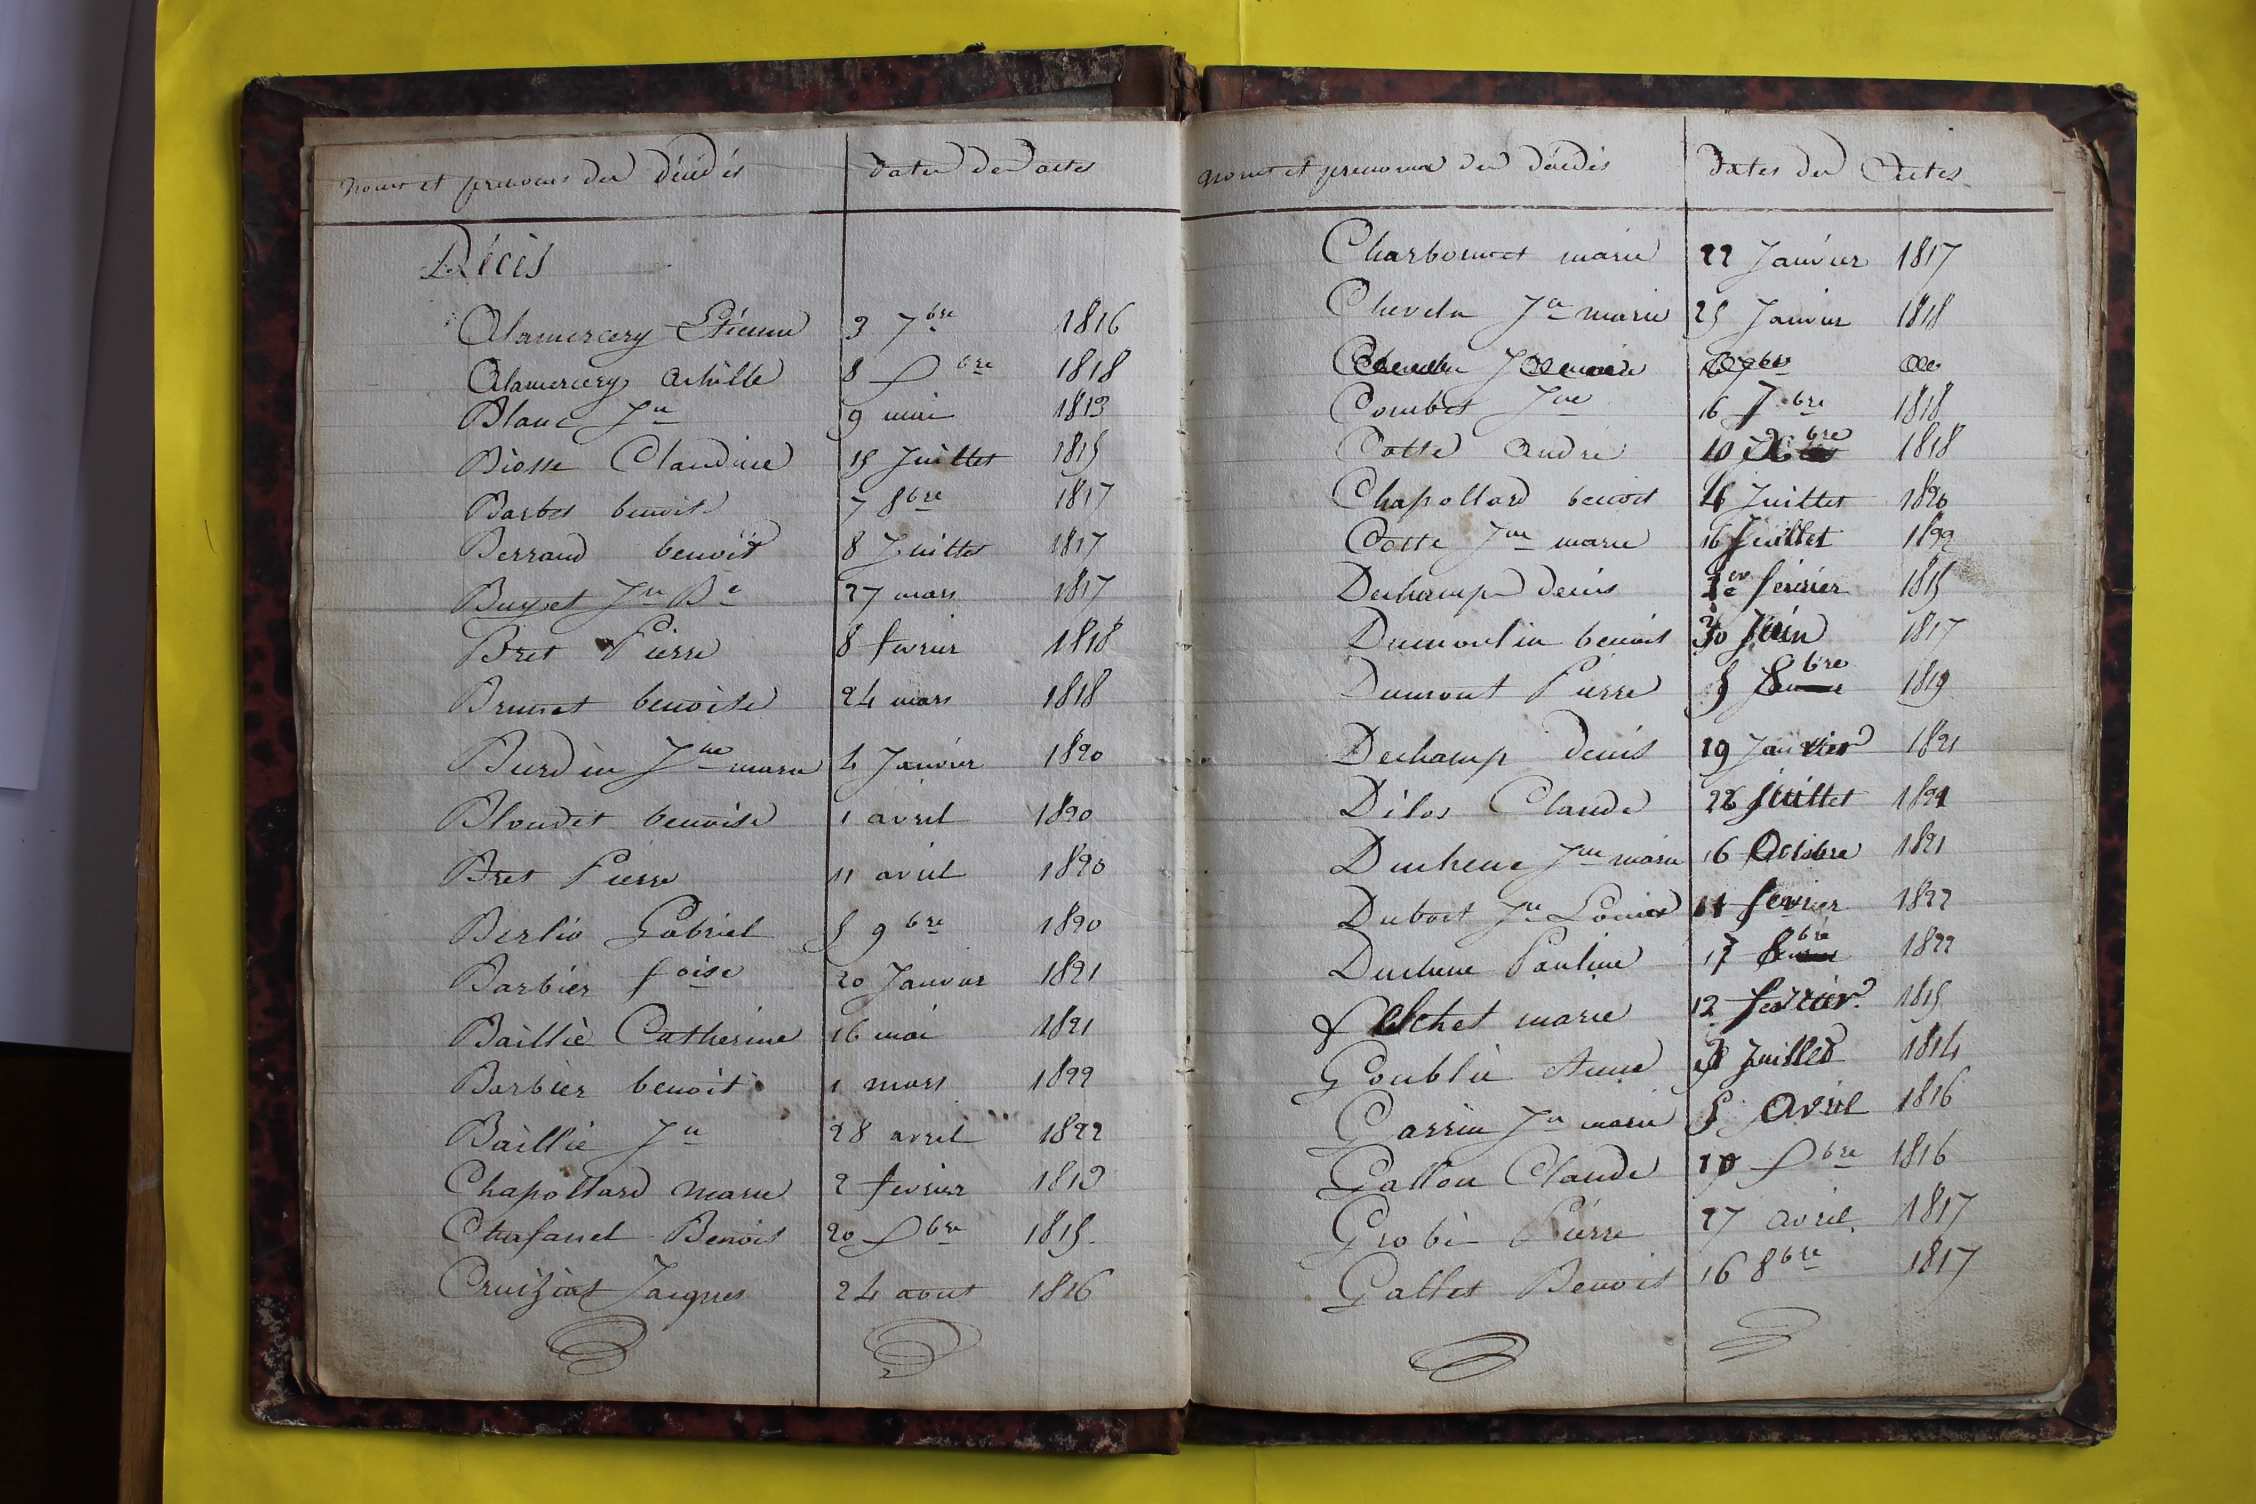 Noms et prenoms des décédés Dates des actes
Décès
Alamercery Etienne 3 7bre 1816
Alamercery Achille 8 bre 1818
Blanc Jn 9 mai 1813
Biosse Claudine 15 Juillet 1815
Barbet benoite 7 8bre 1817
Berraud benoit 8 Juillet 1817
Buyset Jn Be 27 mars 1817
Bret Pierre 8 fevrier 1818
Brunet benoite 24 mars 1818
Burdin Jne marie 4 Janvier 1820
Blondet benoise 1 avril 1820
Bret Pierre 11 avril 1820
Berlio Gabriel 5 9bre 1820
Barbier foise 20 Janvier 1821
Baillie Catherine 16 mai 1821
Barbier benoit 1 mars 1822
Baillie Jn 28 avril 1822
Chapollard marie 2 fevrier 1813
Chafanel Benois 20 bre 1815
Cruiziat Jacques 24 aout 1816
Noms et prenoms des décédés Dates des Actes
Charbonnet marie 22 Janvier 1817
Jn marie 25 Janvier 1818
Combet Jne 16 7bre 1818
Cotte André 10 bre 1818
Chapollard benoit 4 Juillet 1820
Cotte Jne marie 16 Juillet 1822
Dechamp denis 1er février 1815
Dumoulin benoit 30 Juin 1817
Dumont Pierre 5 8bre 1819
Dechamp denis 19 Janvier 1821
Dilos Claude 22 Juillet 1821
Duchene Jne marie 16 Octobre 1821
Dubost Jn Louis 11 fevrier 1822
Duchene Pauline 17 8bre 1822
marie 12 fevrier 1815
Goublié Anne Juillet 1814
Garrin Jn marie 5 Avril 1816
Gallou Claude bre 1816
Grobé Pierre 27 avril 1817
Gallet Benoit 16 8bre 1817